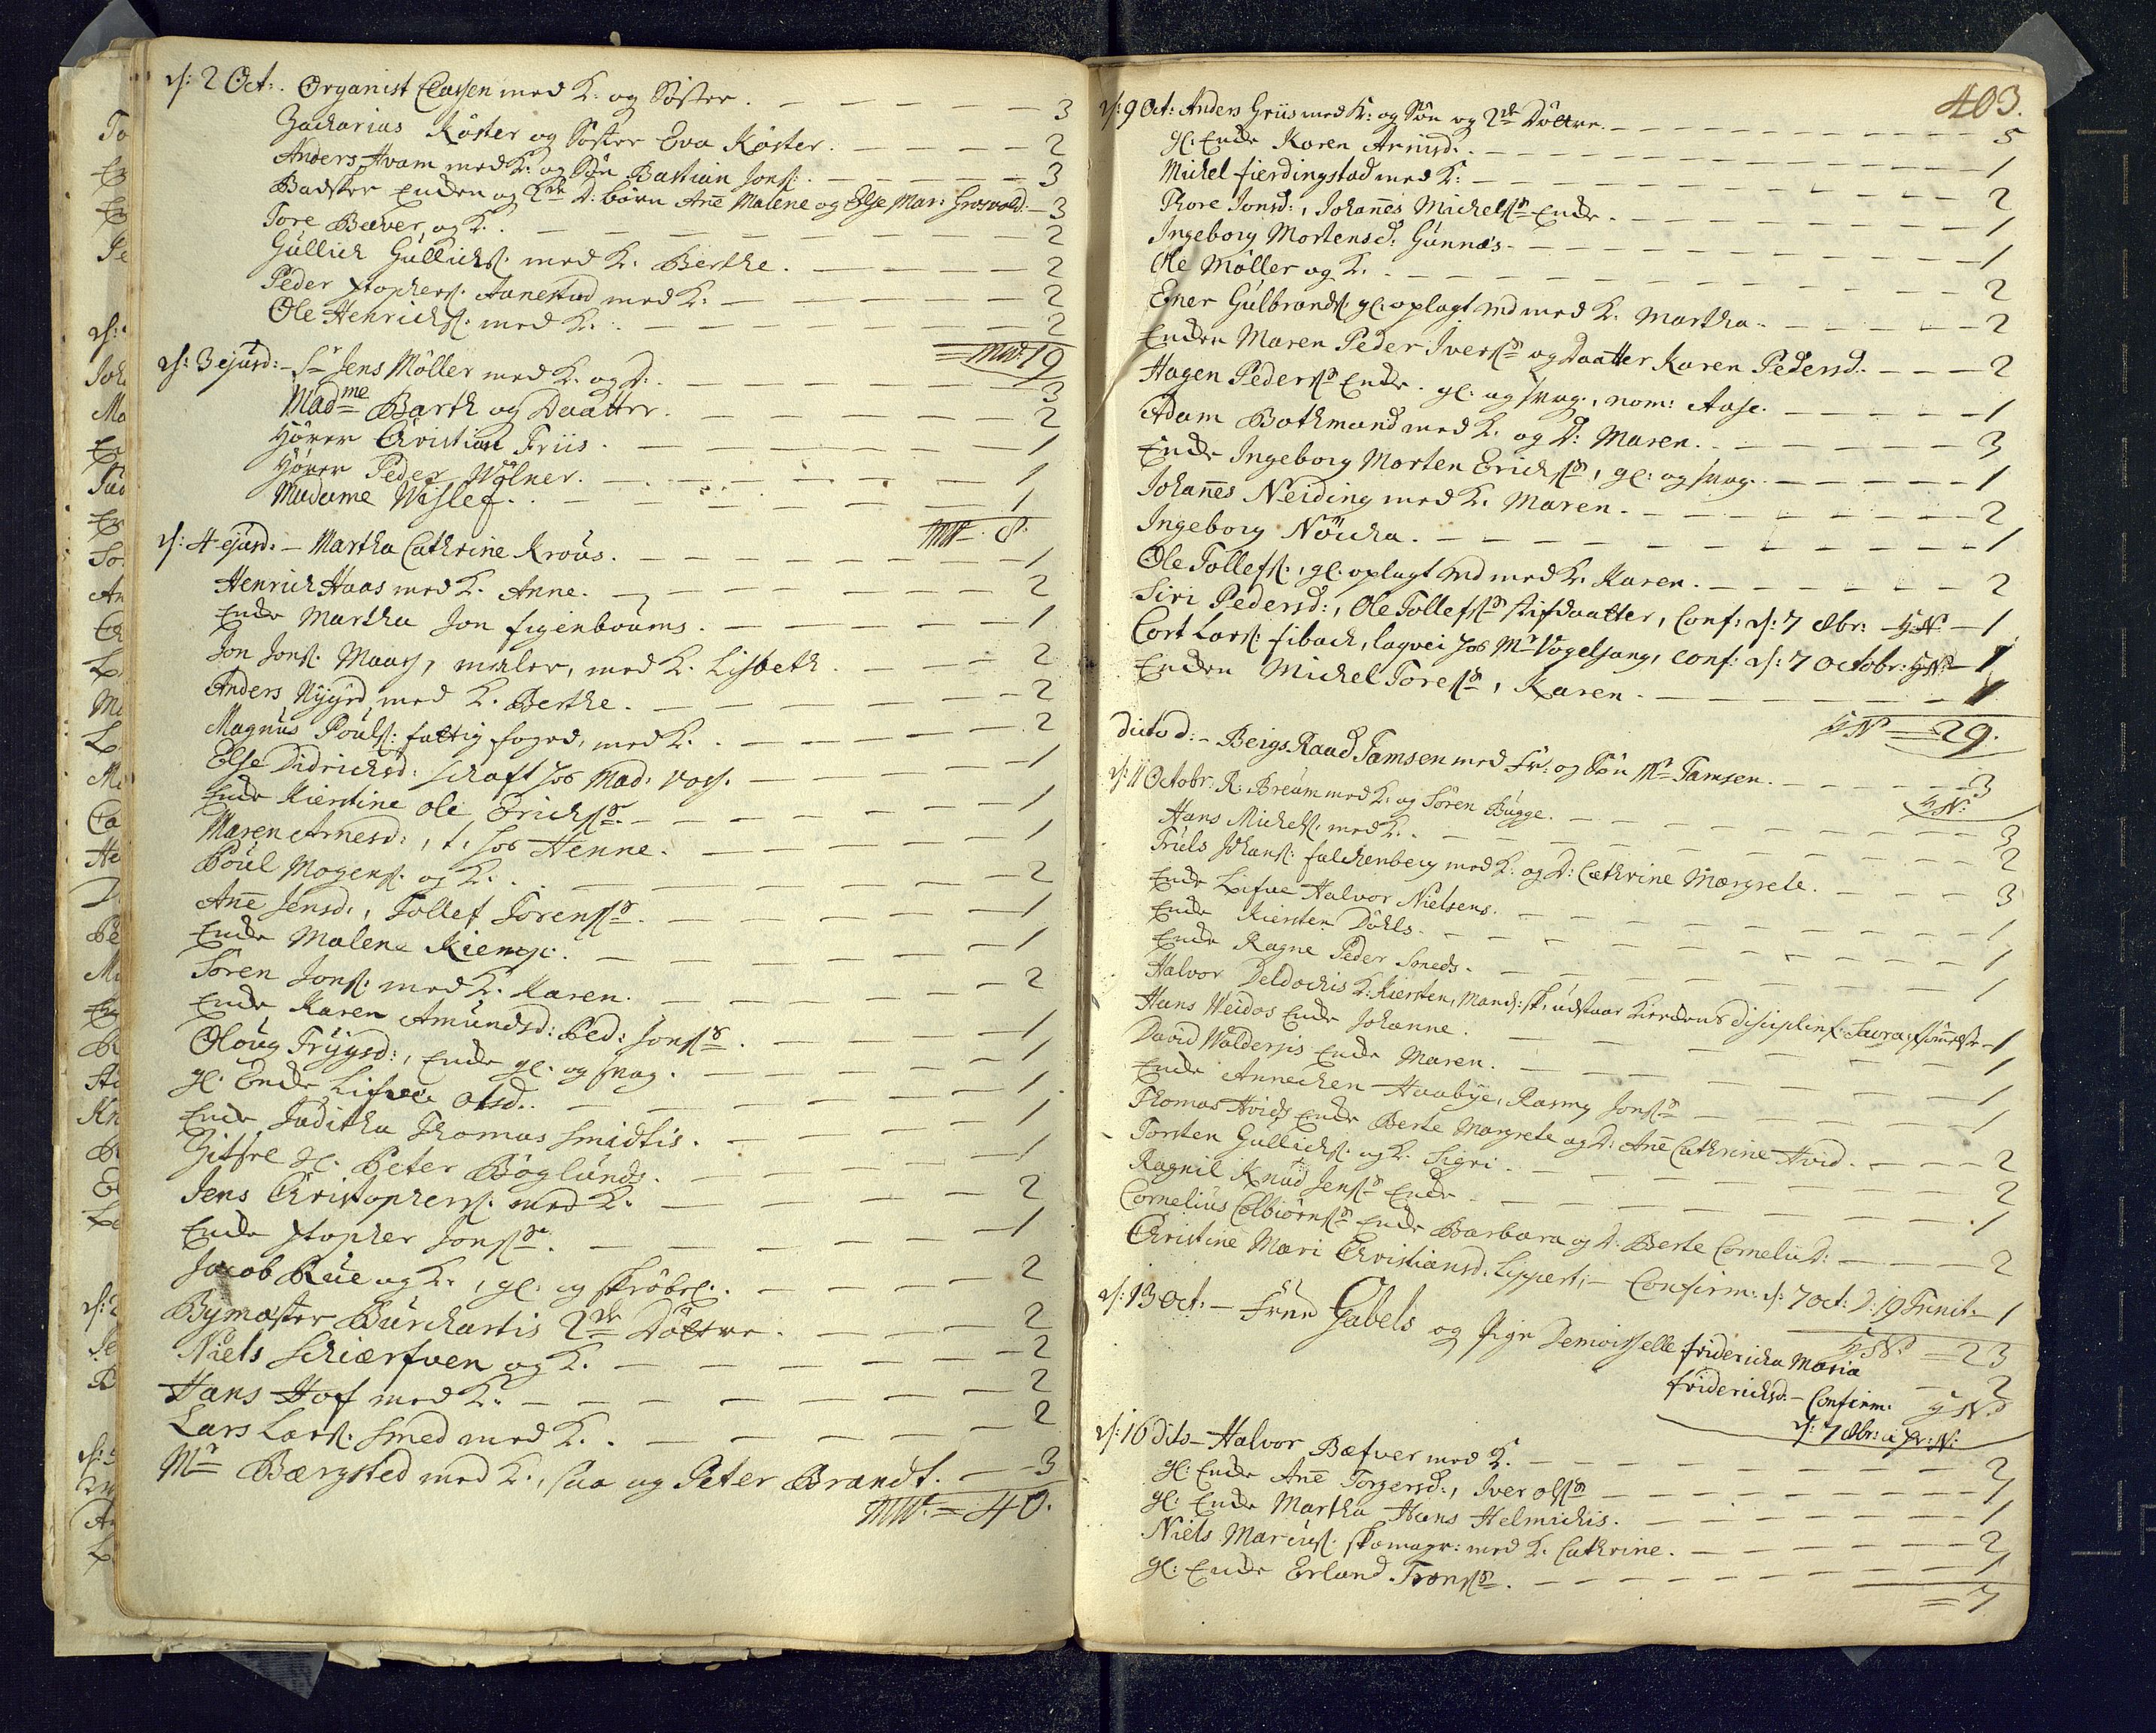 d: 2 Oct: Organist Classen med K: og Söster. 3
Zacharias Köster og Söster Eva Köster. 2
Anders Hvam med K: og Sön Bastian Jens: 3
Badskr Encken og 2de D: börn Ane Malene og Else Mar: 3
Tore Bæver, og K. 2
Gullich Gullichs: med K. Berthe. 2
Peder Xtophers: Aanestad med K: 2
Ole Henrichs: med K. 2
19
d: 3 ejusd: Sr Jens Möller med K. og D. 3
Madme Barth og Daatter. 2
Hörer Christian Friis. 1
Hörer Peder Wölner. 1
Madame Wislef. 1
8.
d: 4 ejusd: Martha Cathrine Kroüs. 1
Henrich Haas med K. Anne. 2
Encke Martha Jon figenboums. 1
Jon Jons: Maas, mahler, med K. Lisbeth. 2
Anders Nygrd med K. Berthe. 2
Magnus Pouls: fattig foged, med K. 2
Else Didrichsd: hos Mad. Voss. 1
Encke Kierstine Ole Erichss. 1
Maren Arnesd:, t. hos Henne. 1
Poul Mogens: og K. 2
Ane Jensd:, Tollef Torenss. 1
Encke Malene Kiemps. 1
Sören Jons: med K. Karen. 2
Encke Karen Amundsd: Ped: Jonss. 1
Oloug Trygsd:, Encke gl. og svag. 1
gl. Encke Lifve Olsd. 1
Encke Juditha Thomas Smidtis. 1
gl. Peter Böglunds. 1
Jens Christophers: med K. 2
Encke Xtopher Jonss. 1
Jacob Rüe og K., gl. og skröbel. 2
Bymester Burchartis 2de Döttre. 2
Niels Schiærfven og K. 2
Hans Hof med K. 2
Lars Lars: Smed med K. 2
Mr Bærgsted med K., saa og Peter Brandt. 3
= 40.
403.
d: 9 Oct: Anders Griis med K: og Sön og 2de Döttre. 5
gl: Encke Karen Arnisd: 1
Michel fierdingstad med K: 2
Thore Jonsd:, Johanes Michelss Encke. 1
Ingeborg Mortensd: Gunnæs. 1
Ole Möller og K. 2
Ener Gulbrands: gl. oplagt md med K. Martha. 2
Encken Maren Peder Iverss og Daatter Karen Pedersd. 2
Hagen Pederss Encke gl. og svag, nom: Aase. 1
Adam Bothmand med K. og D: Maren. 3
Encke Ingeborg Morten Erichss, gl: og svag. 1
Johanes Neiding med K. Maren. 2
Ingeborg Nöcka. 1
Ole Tollefs:, gl: oplagt md med K. Karen. 2
Siri Pedersd:, Ole Tollefss Stifdaatter, Conf: d: 7 8br: 1
Cort Lars: fibach, laqvei hos Mr Vogelsang, conf: d: 7 Octobr: 1
Encken Michel Toress, Karen. 1
= 29.
dicto d: Bergs Raad Tamsen med Fr: og Sön Mr Tamsen. 3
d: 11 Octobr: R. Breüm med K: og Sören Bugge. 3
Hans Michels: med K. 2
Truls Johans: falchenberg med K. og D: Cathrine Margrete. 3
Encke Lifve Halvor Nielsens. 1
Encke Kiersten Döhls. 1
Encke Ragne Peder Smeds. 1
Halvor Deldochis K: Kiersten, Mand: sk. udstaar Kirckens Disciplin f. 1
Hans Weidos Encke Johanne. 1
David Waldersis Encke Maren. 1
Encke Annecken Haabye, Rasmus Jonss 1
Thomas Hvids Encke Berte Margrete og D: Ane Cathrine Hvid. 2
Torsten Gullichs: og K. Sigri. 2
Ragnil Knud Jenss Encke. 1
Cornelius Colbiörnss Encke Barbara og D. Berte Cornelii D: 2
Christine Mari Christiansd. Lippert, Confirm: d: 7 Oct: D: 19 Trinit: 1
= 23
d: 13 Oct: Frue Gabels og Pige Demoisselle friderica Maria 2
friderichsd. Confirm:
d: 7 8br:
d: 16 dito Halvor Bæfver med K. 2
gl: Encke Ane Torgersd:, Iver Olss 1
gl: Encke Martha Hans Helmichis. 1
Niels Marius: skomager: med K. Cathrine. 2
gl: Encke Erland Tronss. 1
= 7